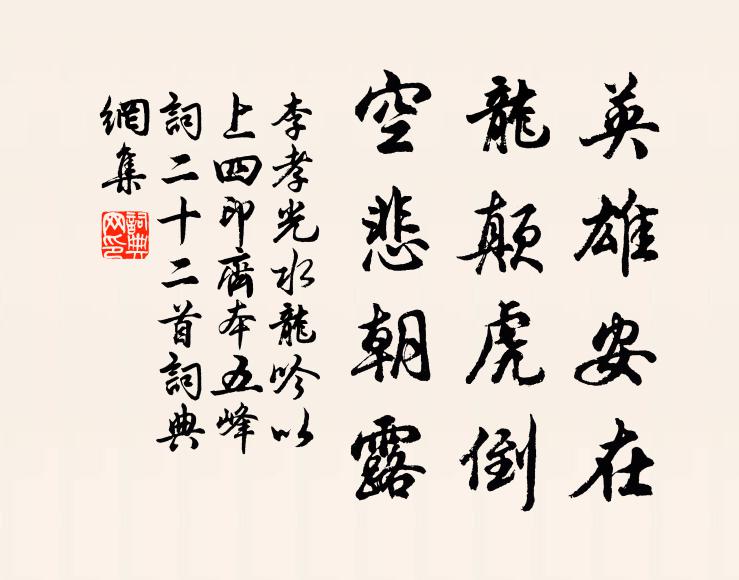 英雄安在
龍顛虎倒
空悲朝露
李孝光水龍吟以
上四印齋本五峰
詞二十二首詞典
網集
詞典網印